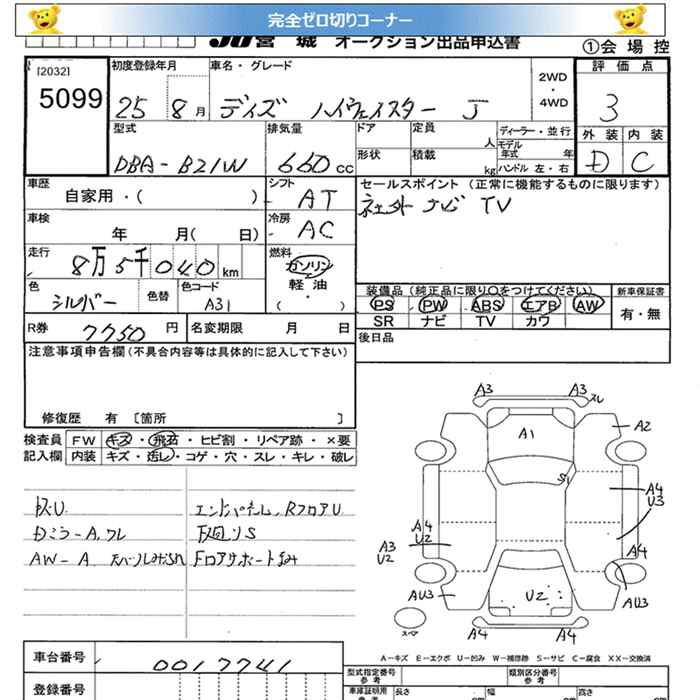 完全ゼロ切りコーナー
JU宮城 オークション出品申込書
①会場控
[2032]
5099
初度登録年月 25 8月
車名・グレード デイズ ハイウェイスター J
2WD・4WD
評価点 3
型式 DBA-B21W
排気量 660cc
ドア 形状
定員 人 積載 kg
ディーラー・並行
モデル年式 年
ハンドル 左・右
外装 D
内装 C
車歴 自家用・( )
シフト AT
セールスポイント (正常に機能するものに限ります)
社外 ナビ TV
車検 年 月( 日)
冷房 AC
走行 8万5千040km
燃料 ガソリン 軽油 ・ ( )
色 シルバー 色替
色コード A31
装備品 (純正品に限り○をつけてください)
PS PW ABS エアB AW
SR ナビ TV カワ
新車保証書 有・無
R券 7750円
名変期限 月 日
後日品
注意事項申告欄 (不具合内容等は具体的に記入して下さい)
修復歴 有 [箇所 ]
検査員記入欄
FW キズ・飛石・ヒビ割・リペア跡・×要
内装 キズ・汚レ・コゲ・穴・スレ・キレ・破レ
Dミラ-A,ワレ
AW-A
エンドパネル、RフロアU
下回りS
A3 A3 スレ
A2
A1
S1
A4
U3
A4
U2
A3
U2
A4
U2
AU3
AU3
スペア
A4 A4
A-キズ E-エクボ U-凹み W-補修跡 S-サビ C-腐食 XX-交換済
車台番号 0017741
登録番号
型式指定番号 参考
類別区分番号 参考
車庫証明用 参考 長さ cm 幅 cm 高さ cm